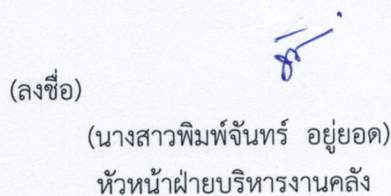 (ลงชื่อ)
(นางสาวพิมพ์จันทร์ อยู่ยอด)
หัวหน้าฝ่ายบริหารงานคลัง